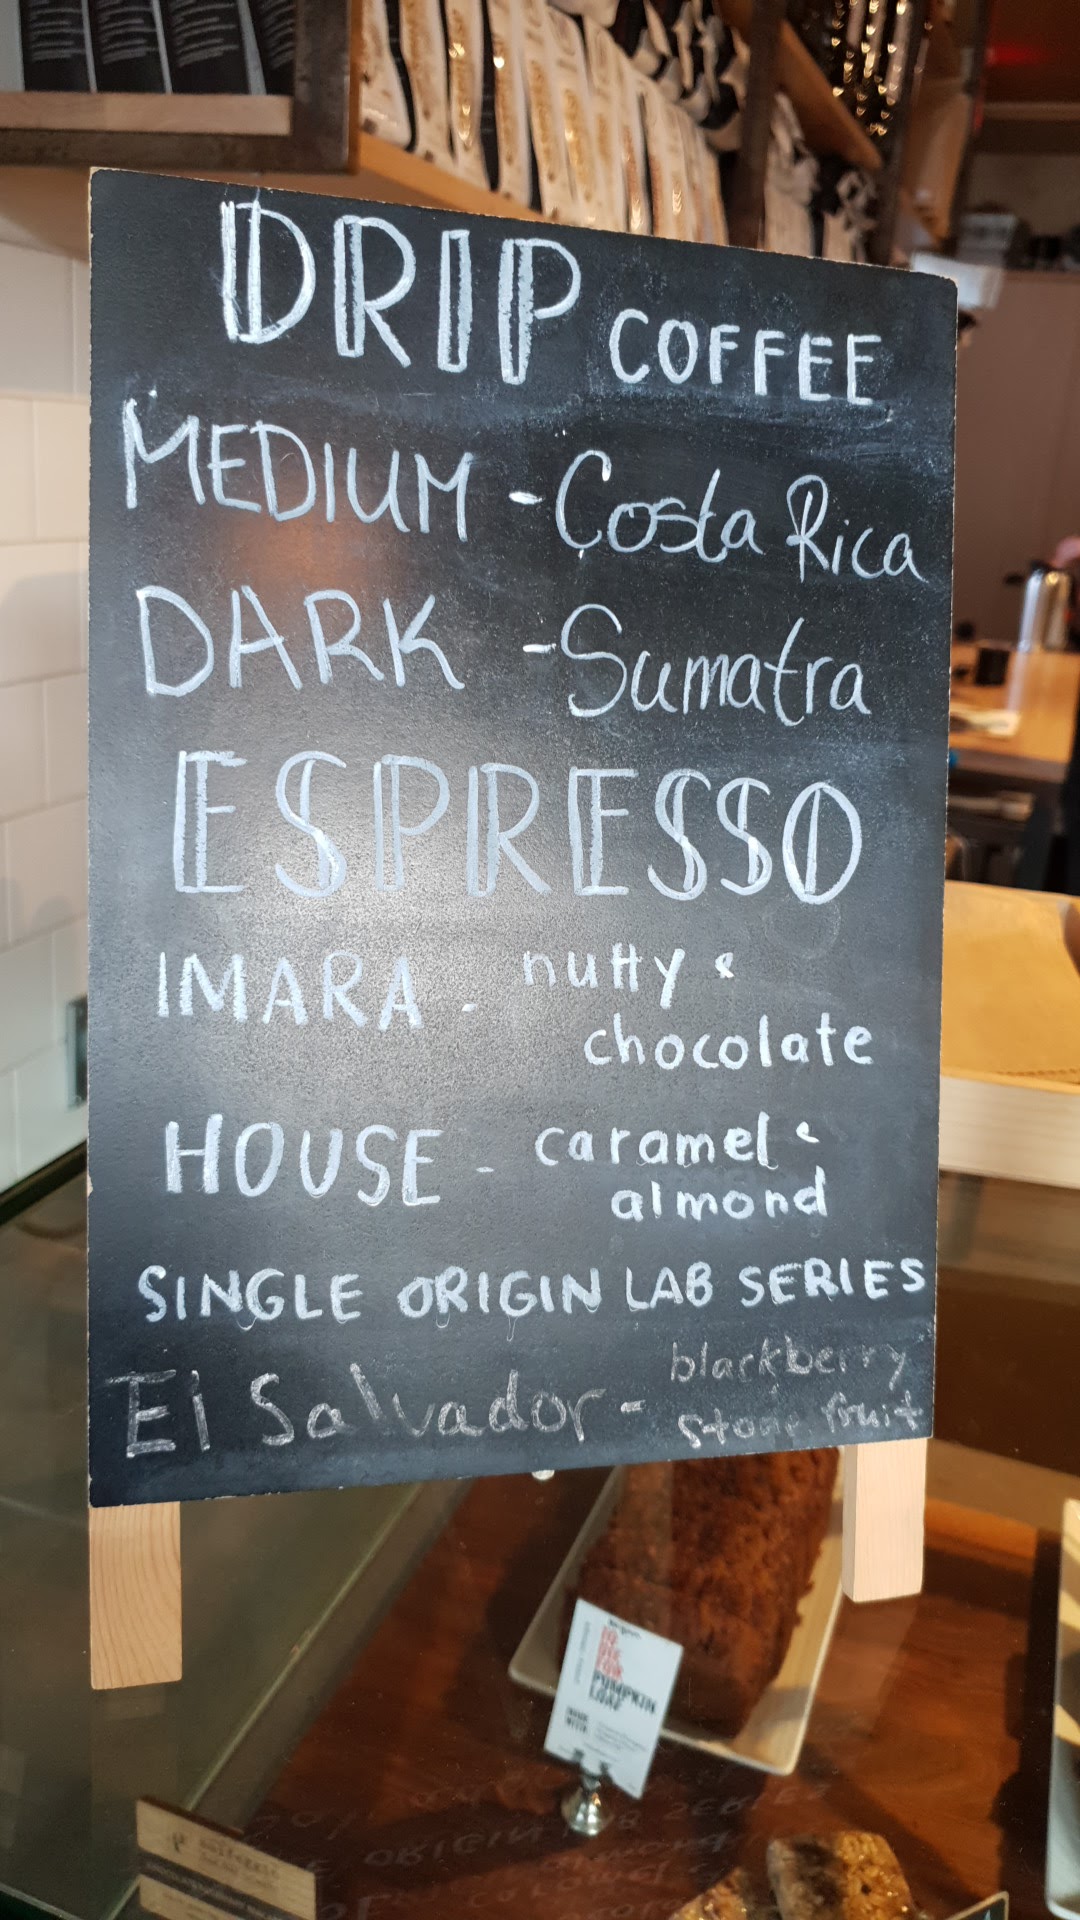 DRIP COFFEE
MEDIUM - Costa Rica
DARK - Sumatra
ESPRESSO
IMARA - nutty &
chocolate
HOUSE - caramel &
almond
SINGLE ORIGIN LAB SERIES
El Salvador - blackberry
stone fruit
PUMPKIN
LOAF